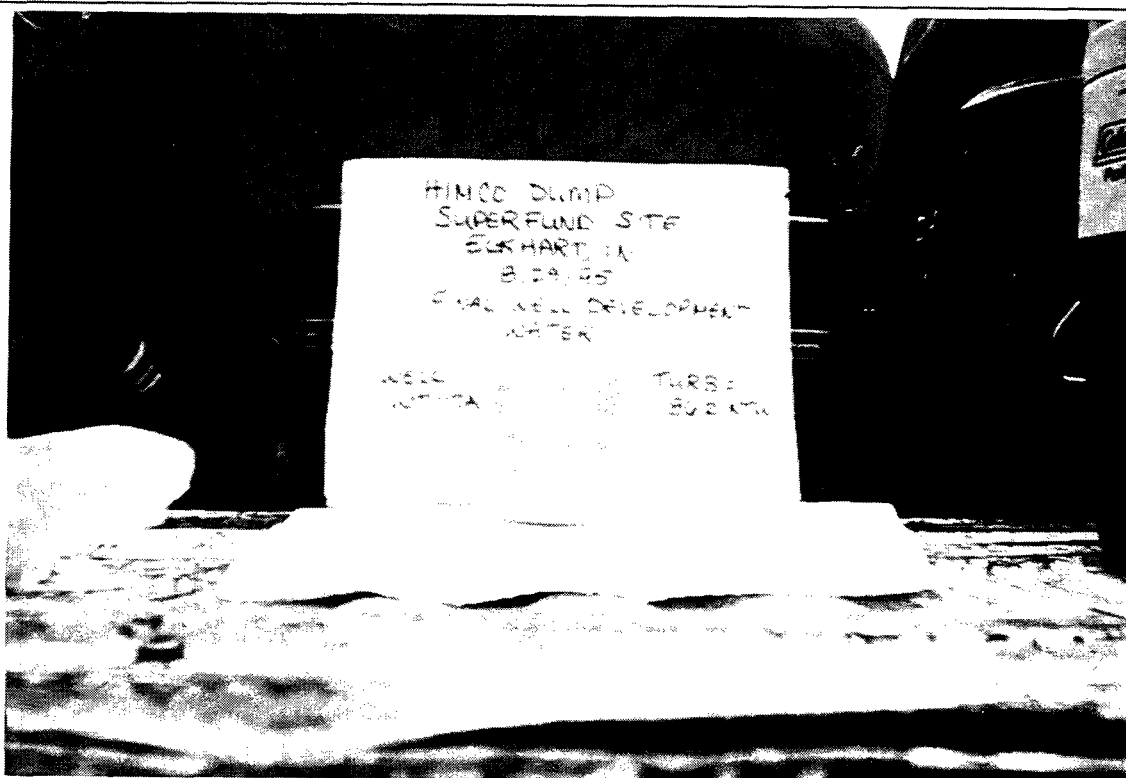 HIMCO DUMP
SUPERFUND SITE
ELKHART, IN
8/29/95
FINAL WELL DEVELOPMENT
WATER
WELL
TURB =
NTU